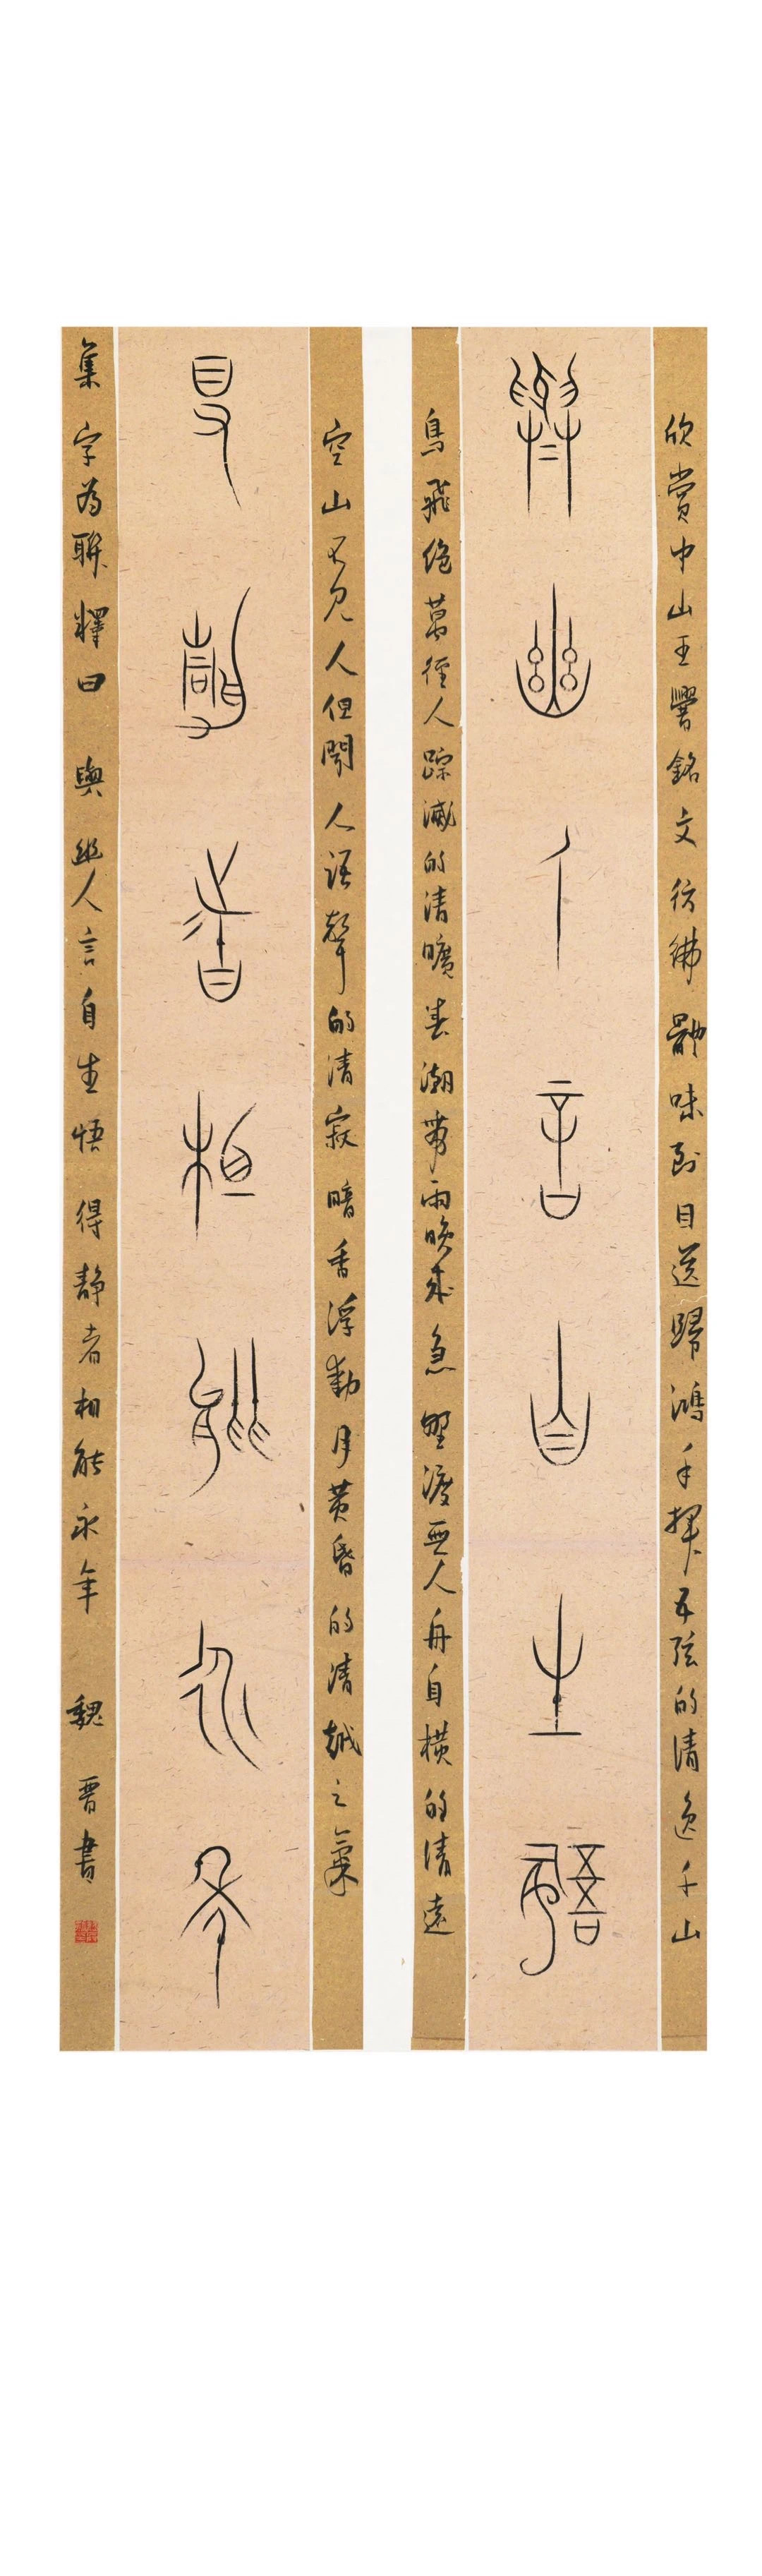 欣賞中山王響銘文彷彿體味到目送歸鴻手揮五弦的清逸千山
與幽人言自生悟
鳥飛絕萬徑人踪滅的清曠春潮帶雨晚來急野渡無人舟自橫的清遠
空山不見人但聞人語聲的清寂暗香浮動月黃昏的清越之氣
得靜者相能永年
集字為聯釋曰 與幽人言自生悟 得靜者相能永年 魏晋書